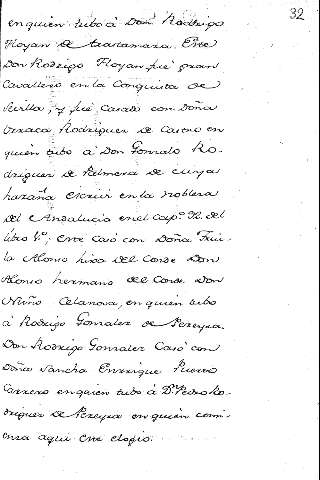 32
en quien tubo á Don Rodrigo
Floyan de Trastamara. Este
Don Rodrigo Floyan fué gran
Cavallero en la Conquista de
Sevilla, y fué Casado con Doña
Urraca Rodriguez de Castro en
quien tubo á Don Gonzalo Ro-
driguez de Palmera de cuya
hazaña escrivi en la nobleza
del Andalucia en el Cap.º 92. del
libro 1.º; Este Casó con Doña
la Alonso hixa del Conde Don
Alonso hermano del Conde Don
Nuño Celanova, en quien tubo
á Rodrigo Gonzalez de Pereyra.
Don Rodrigo Gonzalez Casó con
Doña Sancha Enrriquez Puerto
Carrero en quien tubo á D.ⁿ Pedro Ro-
driguez de Pereyra en quien comi-
enza aqui este elogio.